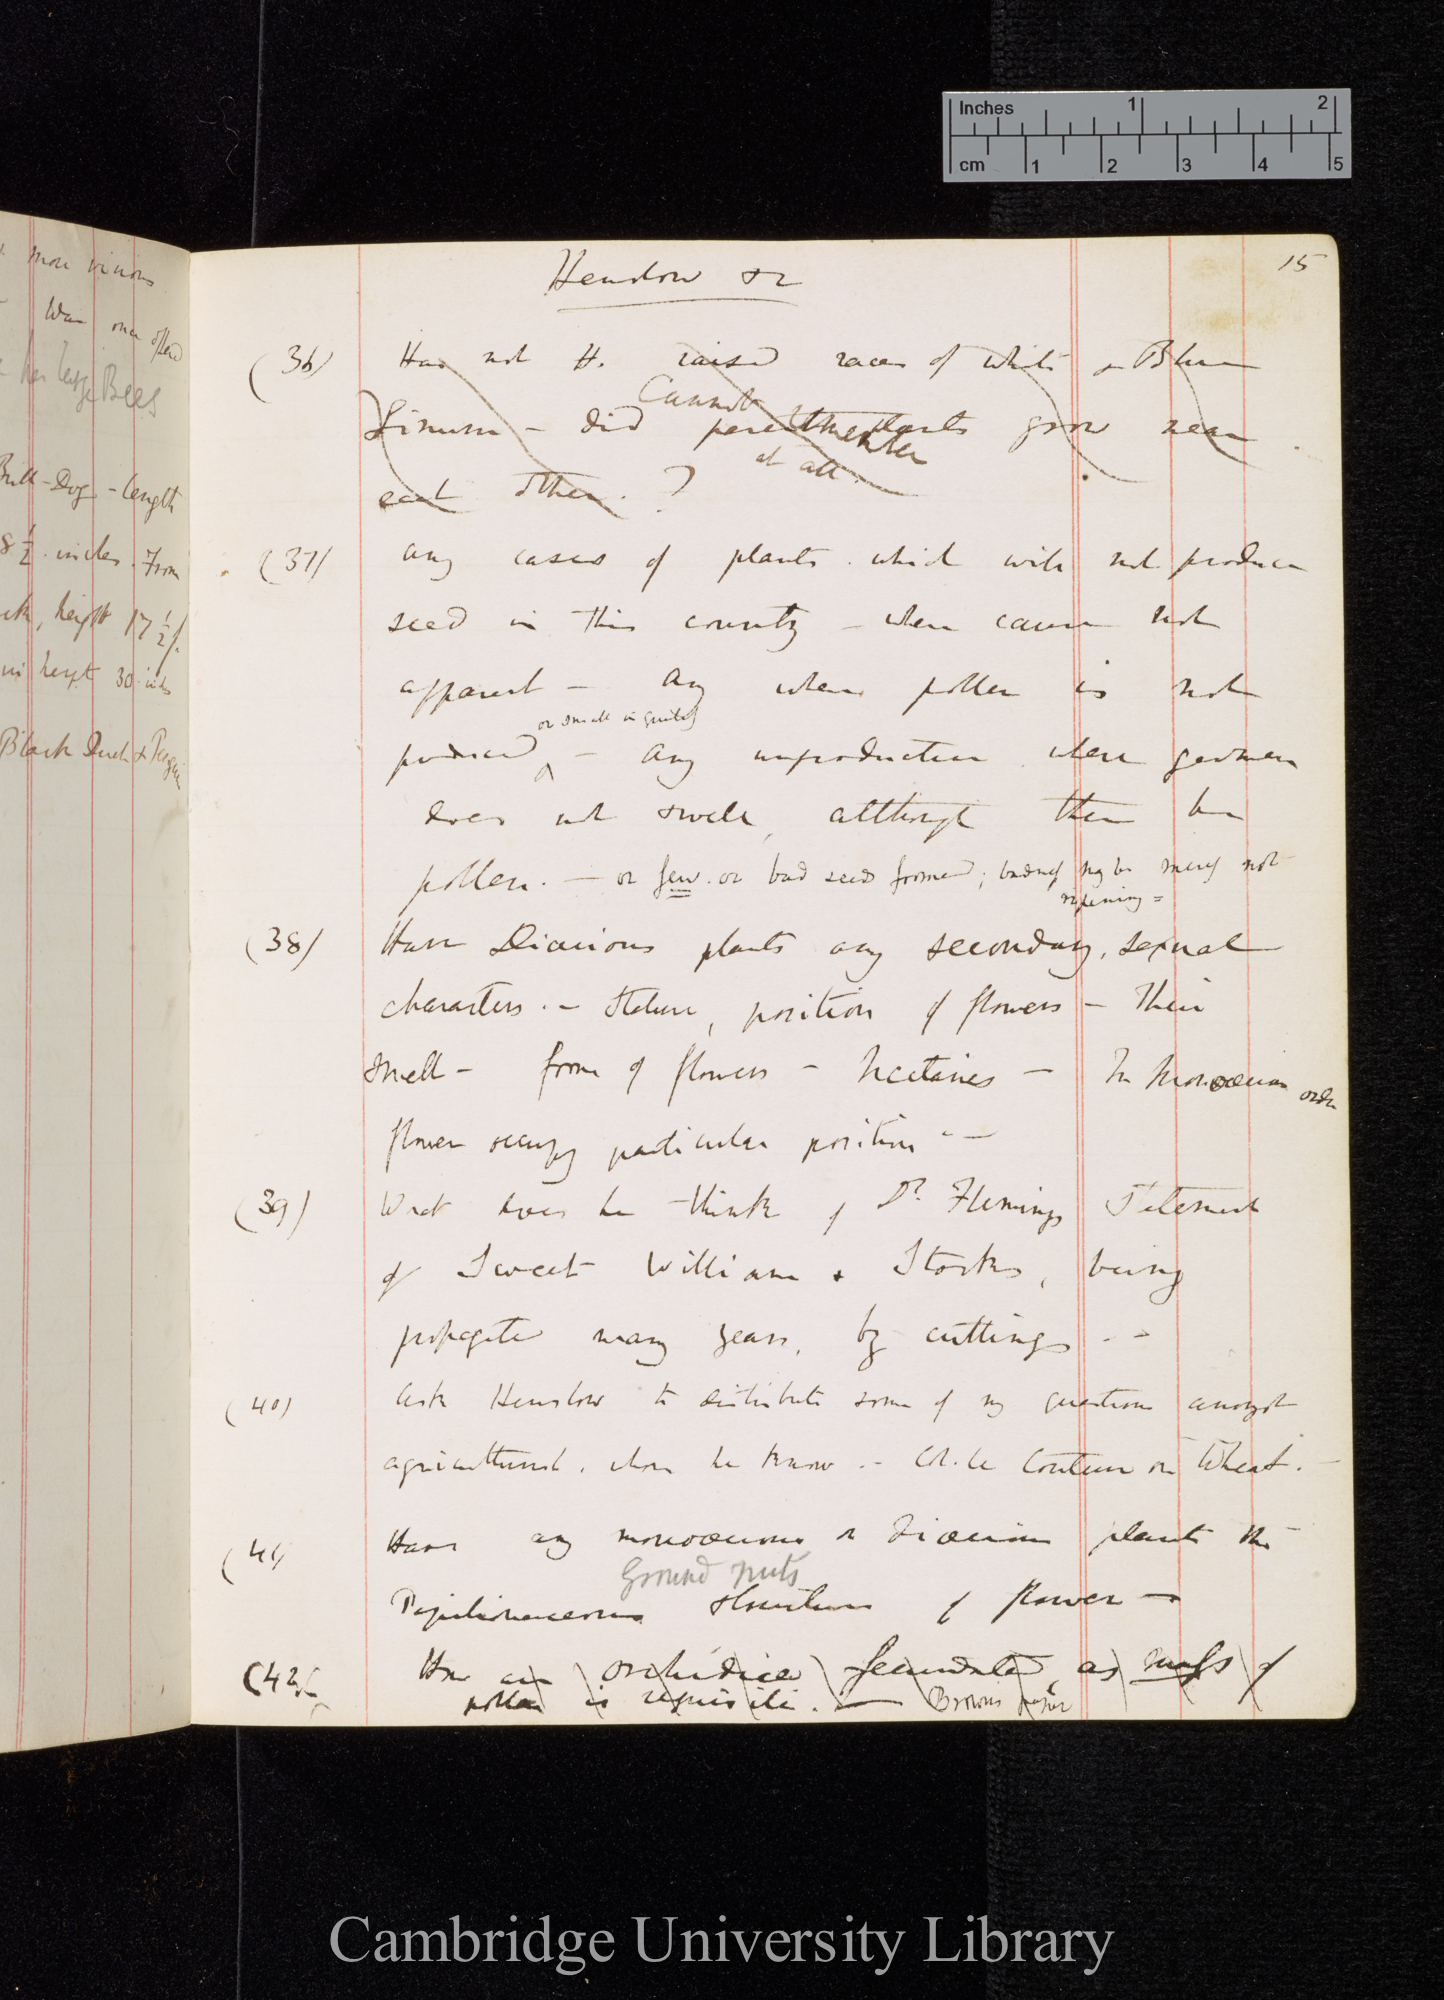 Inches 1 2
cm 1 2 3 4 5
more vicious
War once offered
his large Bees
Bull-Dog - length
8 1/2 inches. From
height 17 1/2
in height 30 inches
Black Duck & Penguin
15
Henslow &c
(36) Has not H. raised races of white & Blue
Cannot
Linum - did parent plants grow near
remember
at all.
each other. ?
(37) Any cases of plants which will not produce
seed in this country - where cause not
apparent - Any where pollen is not
or small in quantity
produced - Any unproductive where germen
does not swell, although there be
pollen. - or few or bad seeds formed; badness may be merely not
ripening =
(38) Have Dioecious plants any secondary, sexual
characters. - Stature, position of flowers - their
smell - form of flowers - Nectaries - In Monoecious order
flower occupy particular position. -
(39) What does he think of Dr. Flemings Statement
of Sweet William & Stocks, being
propagated many years, by cuttings. -
(40) Ask Henslow to distribute some of my questions amongst
agriculturist. whom he knows. - Col. Le Couteur on Wheat. -
(41) Have any monoecious or Dioecious plants the
Ground nuts
Papilionaceous structure of flower -
(42) How are Orchideae fecundated, as mass of
pollen is requisite. - Browns paper
Cambridge University Library